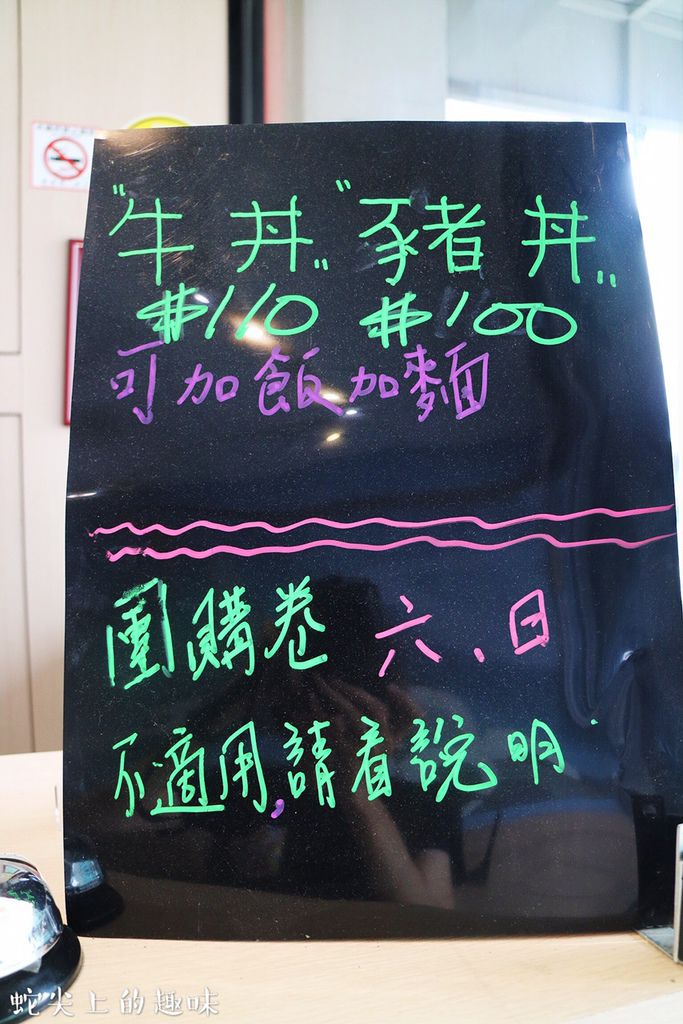 "牛丼" "豬丼"
$110 $100
可加飯加麵
團購卷 六、日
不適用,請看說明.
蛇尖上的趣味